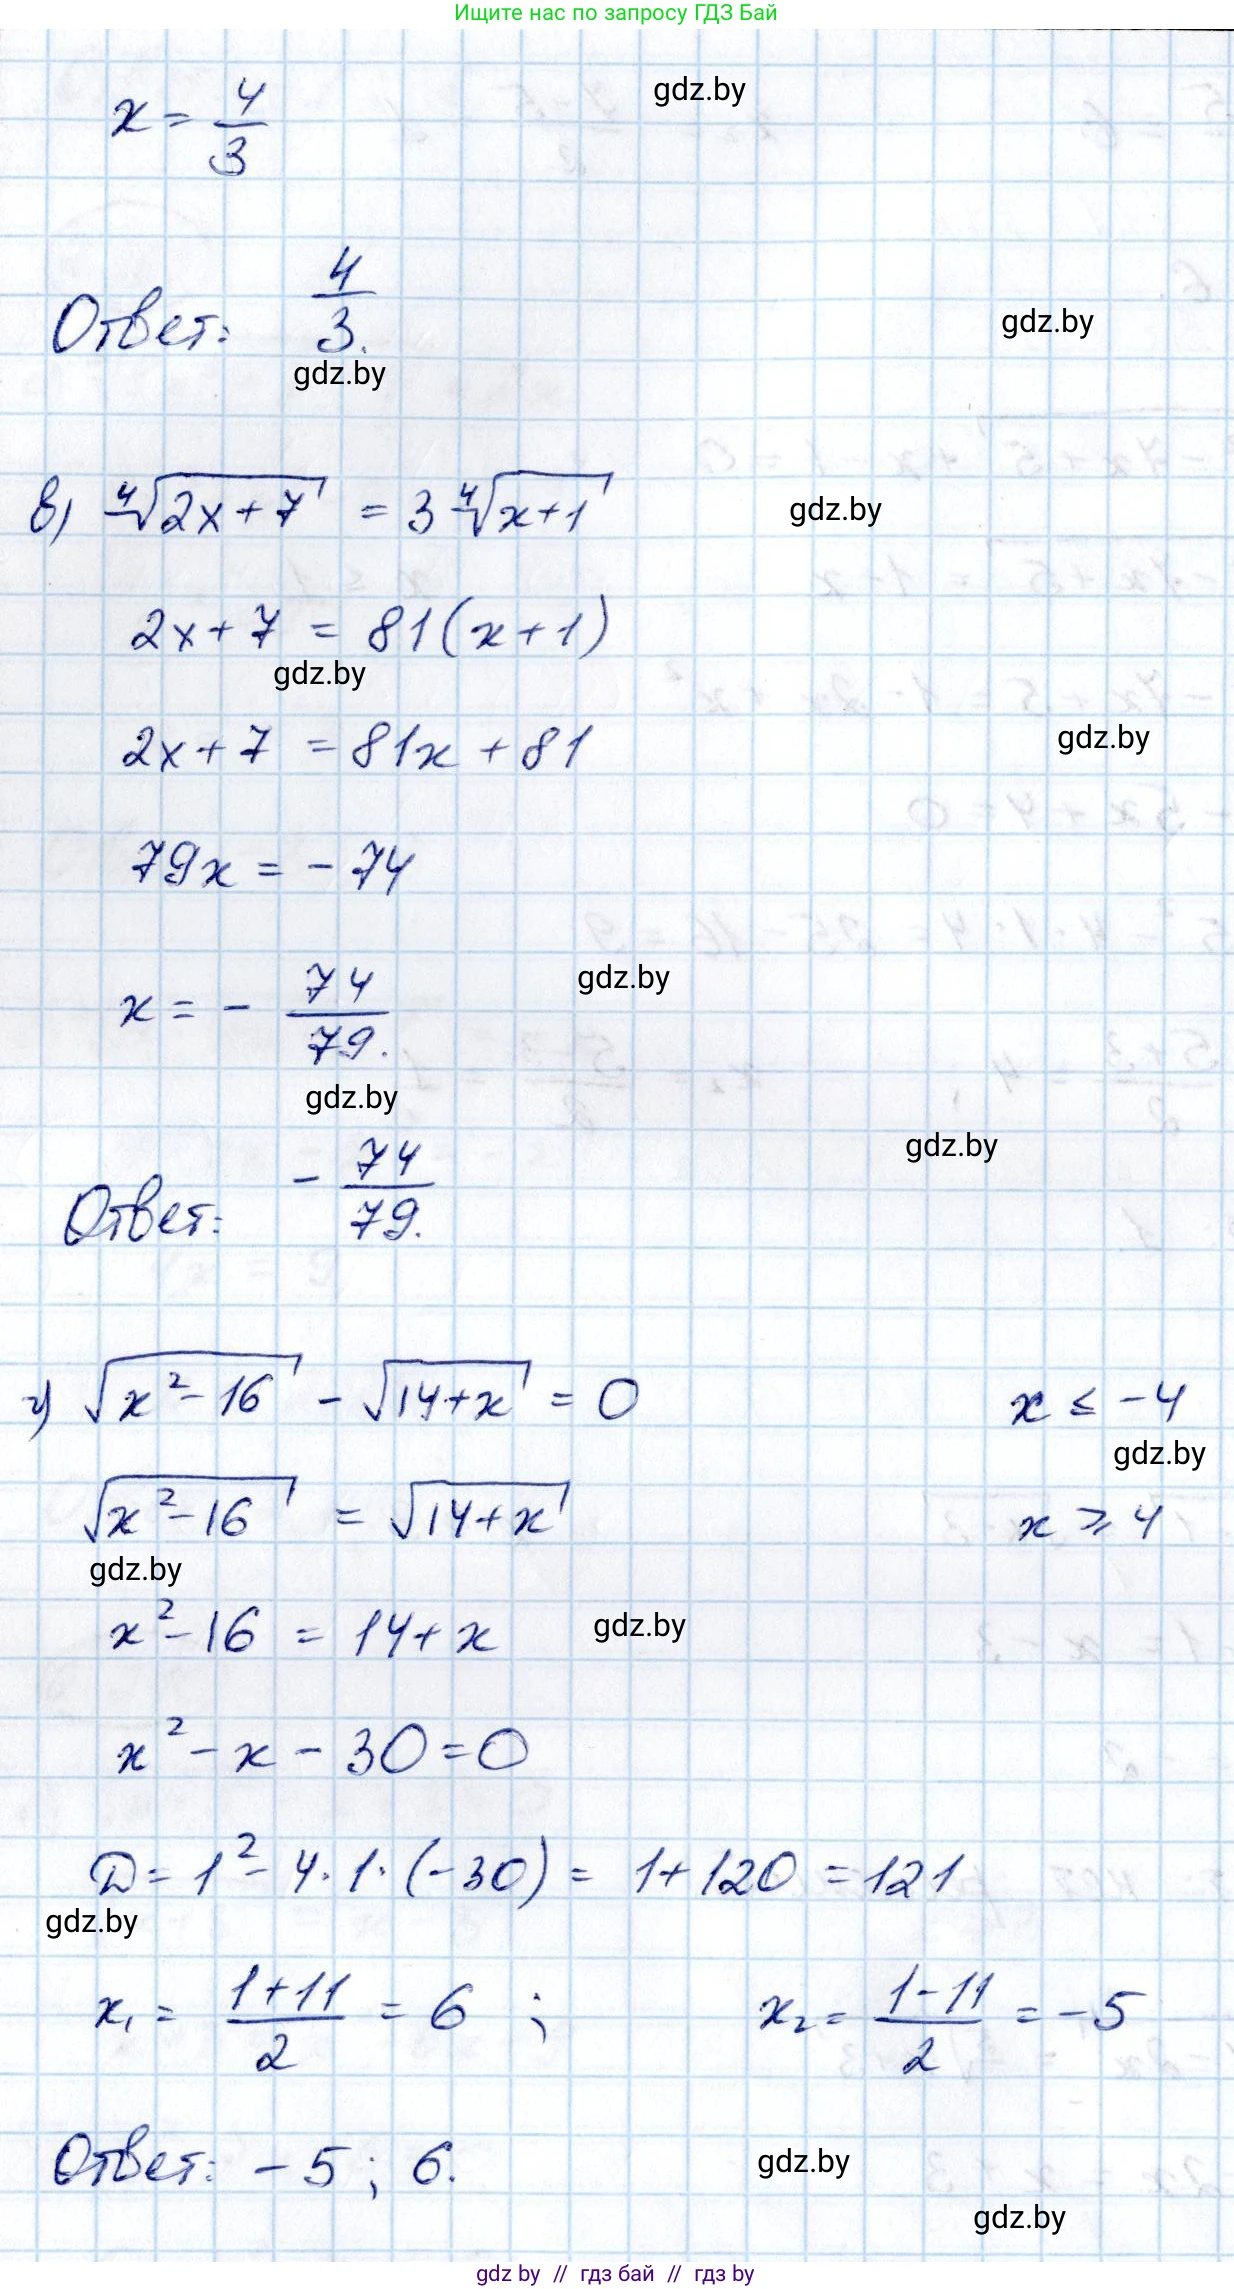 Ищите нас по запросу ГДЗ Бай
x = 4/3
gdz.by
Ответ: 4/3.
gdz.by
gdz.by
в) ⁴√(2x+7) = 3 ⁴√(x+1)
gdz.by
2x+7 = 81(x+1)
gdz.by
2x+7 = 81x + 81
gdz.by
79x = - 74
x = - 74/79.
gdz.by
gdz.by
gdz.by
Ответ: - 74/79.
г) √(x²-16) - √(14+x) = 0 x ≤ -4
gdz.by
√(x²-16) = √(14+x) x ≥ 4
gdz.by
x²-16 = 14+x
gdz.by
x² - x - 30 = 0
D = 1² - 4·1·(-30) = 1+120 = 121
gdz.by
x₁ = (1+11)/2 = 6 ; x₂ = (1-11)/2 = -5
Ответ: -5; 6.
gdz.by
gdz.by
gdz.by // гдз бай // гдз by